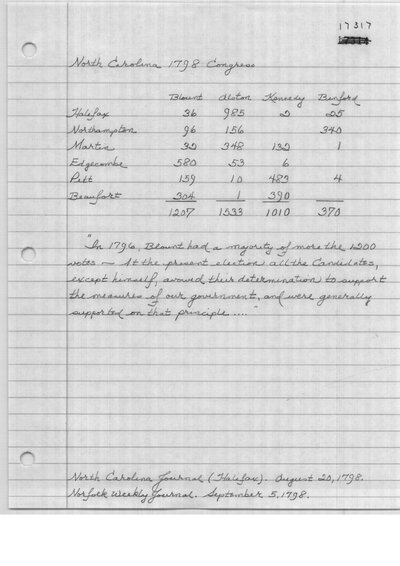 17317
North Carolina 1798 Congress
Blount Alston Kennedy Benford
Halifax 36 985 2 25
Northampton 96 156 340
Martin 32 348 132 1
Edgecombe 580 53 6
Pitt 159 10 482 4
Beaufort 304 1 390
1207 1533 1010 370
"In 1796, Blount had a majority of more the 1200
votes — At the present election all the Candidates,
except himself, avowed their determination to support
the measures of our government, and were generally
supported on that principle ...."
North Carolina Journal (Halifax). August 20, 1798.
Norfolk Weekly Journal. September 5, 1798.